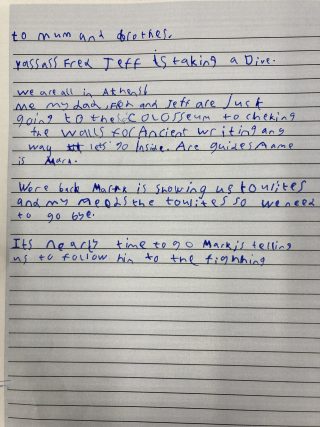 to mum and brother,
Yassass Fred Jeff is taking a Dive.
we are all in Athens
me my dad, and Jeff are Just
going to the COLOSSEUM to cheking
the walls for Ancient writing any
way lets go Inside. Are guides name
is Mark.
Were back Mark is showing us toulites
and my needs the toulites so we need
to go bye.
Its nearly time to go Mark is telling
us to follow him to the fighting